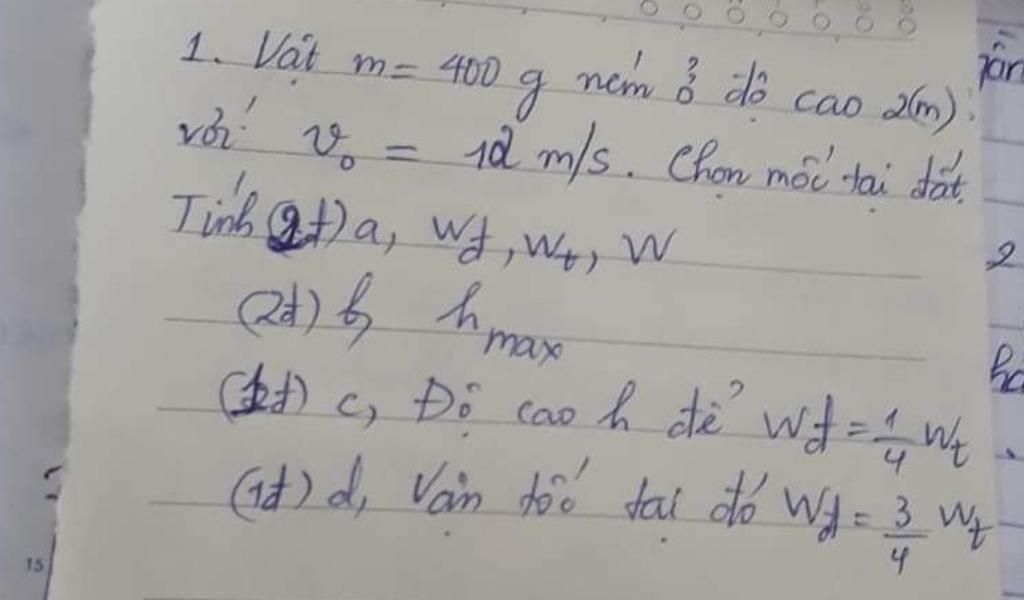 1. Vật m = 400 g ném ở độ cao 2(m)
với v₀ = 12 m/s. Chọn mốc tại đất.
Tính (2đ) a, Wđ, Wt, W
(2đ) b, h max
(1đ) c, Độ cao h để Wđ = 1/4 Wt
(1đ) d, Vận tốc tại đó Wđ = 3/4 Wt
2
15